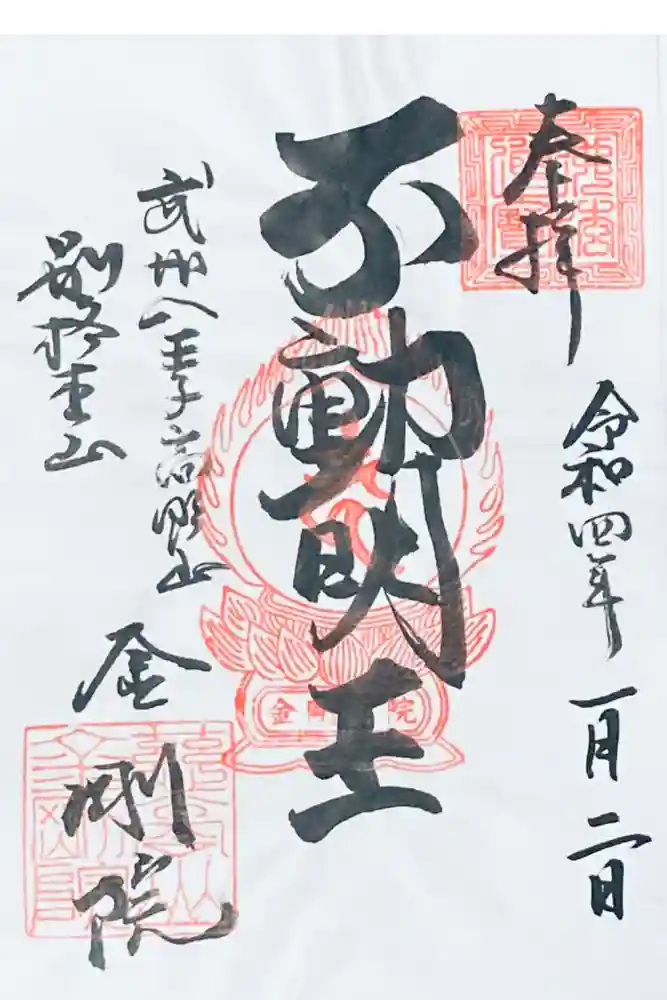 奉拝
令和四年 一月 二日
不動明王
武州八王子高野山
別格本山
金剛院